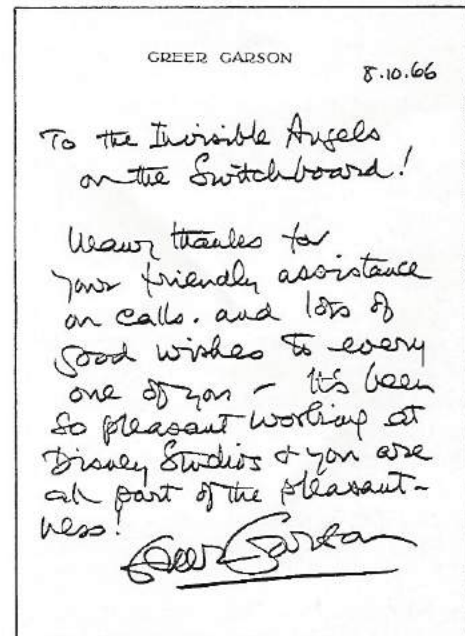 GREER GARSON
8.10.66
To the Invisible Angels
on the Switchboard!
Many thanks for
your friendly assistance
on calls. and lots of
good wishes to every
one of you – It's been
so pleasant working at
Disney Studios & you are
all part of the pleasant-
ness!
Greer Garson